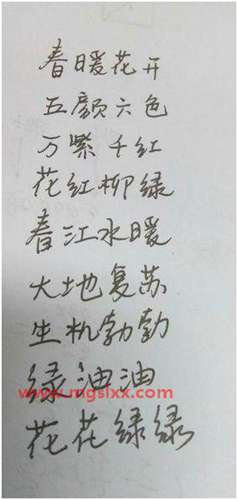 春暖花开
五颜六色
万紫千红
花红柳绿
春江水暖
大地复苏
生机勃勃
绿油油
www.mgslxx.com
花花绿绿